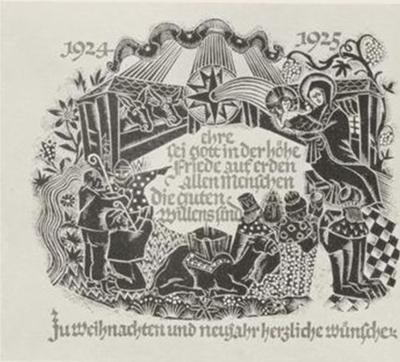 1924
1925
ehre
sei gott in der höhe
friede auf erden
allen Menschen
die guten
willens sind
Zu weihnachten und neujahr herzliche wünsche